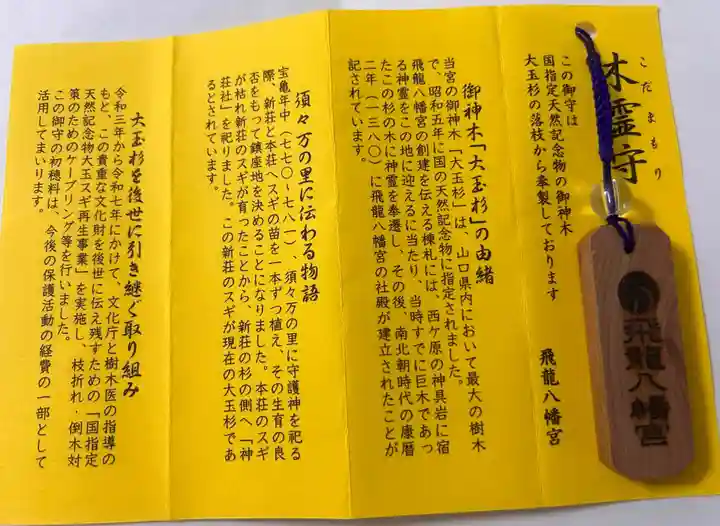 木霊守
こだまもり
この御守は
国指定天然記念物の御神木
大玉杉の落枝から奉製しております
飛龍八幡宮
飛龍八幡宮
御神木「大玉杉」の由緒
当宮の御神木「大玉杉」は、山口県内において最大の樹木
で、昭和五年に国の天然記念物に指定されました。
飛龍八幡宮の創建を伝える棟札には、西ケ原の神具岩に宿
る神霊をこの地に迎えるに当たり、当時すでに巨木であっ
たこの杉の木に神霊を奉遷し、その後、南北朝時代の康暦
二年（一三八〇）に飛龍八幡宮の社殿が建立されたことが
記されています。
須々万の里に伝わる物語
宝亀年中（七七〇～七八一）、須々万の里に守護神を祀る
際、新荘と本荘へスギの苗を一本ずつ植え、その生育の良
否をもって鎮座地を決めることになりました。本荘のスギ
が枯れ新荘のスギが育ったことから、新荘の杉の側へ「神
荘社」を祀りました。この新荘のスギが現在の大玉杉であ
るとされています。
大玉杉を後世に引き継ぐ取り組み
令和三年から令和七年にかけて、文化庁と樹木医の指導の
もと、この貴重な文化財を後世に伝え残すための「国指定
天然記念物大玉スギ再生事業」を実施し、枝折れ・倒木対
策のためのケーブリング等を行いました。
この御守の初穂料は、今後の保護活動の経費の一部として
活用してまいります。